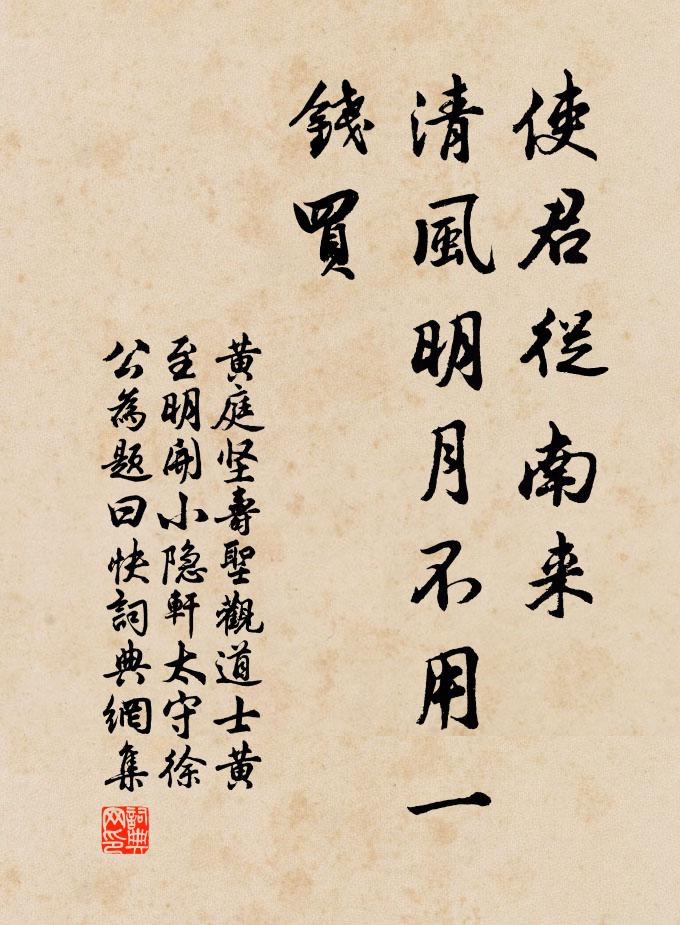 使君從南来
清風明月不用一
錢買
黄庭坚壽聖觀道士黄
至明開小隐軒太守徐
公為題曰快詞典網集
詞典网印